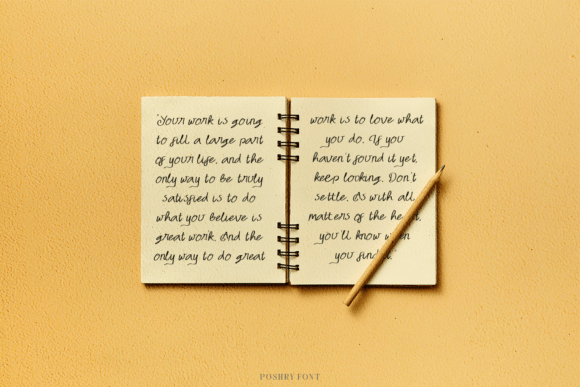 'Your work is going
to fill a large part
of your life, and the
only way to be truly
satisfied is to do
what you believe is
great work. And the
only way to do great
work is to love what
you do. If you
haven't found it yet,
keep looking. Don't
settle. As with all
matters of the heart,
you'll know when
you find it.
POSHRY FONT